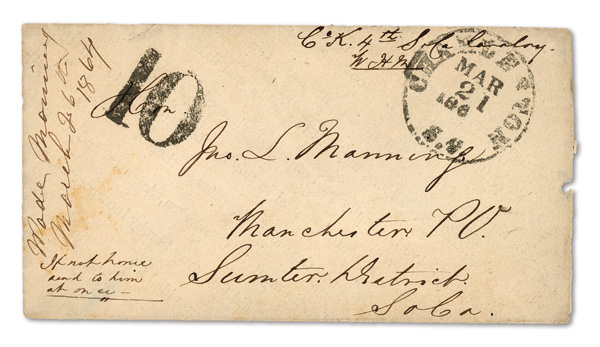 Co K. 4th So Ca Cavalry.
W H M
CHARLESTON
MAR
21
186
S.C.
10
Hon
Jno. L. Manning
Manchester P.O.
Sumter. District.
So Ca.
Wade Manning
March 26th 1864
If not home
send to him
at once